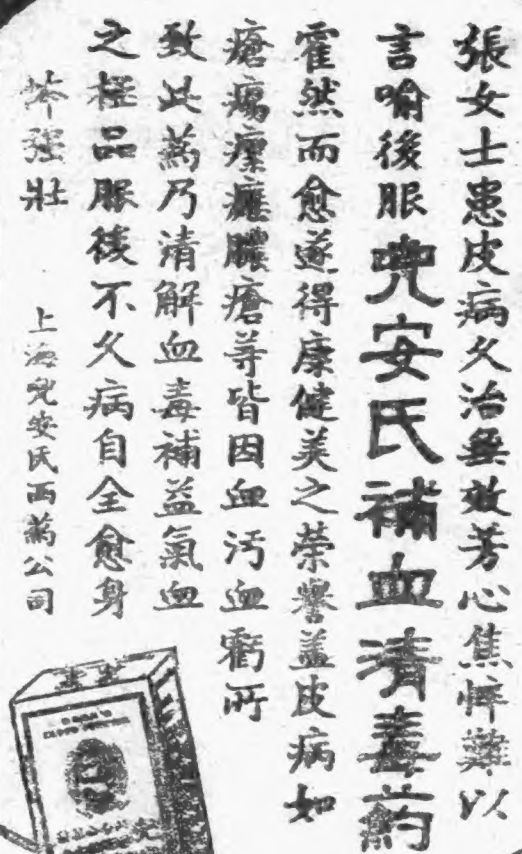 張女士患皮病久治無效芳心焦悴難以
言喻後服兜安氏補血清毒药
霍然而愈遂得康健美之荣譽盖皮病如
瘡瘍瘰癧膿瘡等皆因血污血虧所
致此藥乃清解血毒補益氣血
之極品服後不久病自全愈身
體强壯
上海兜安氏西藥公司